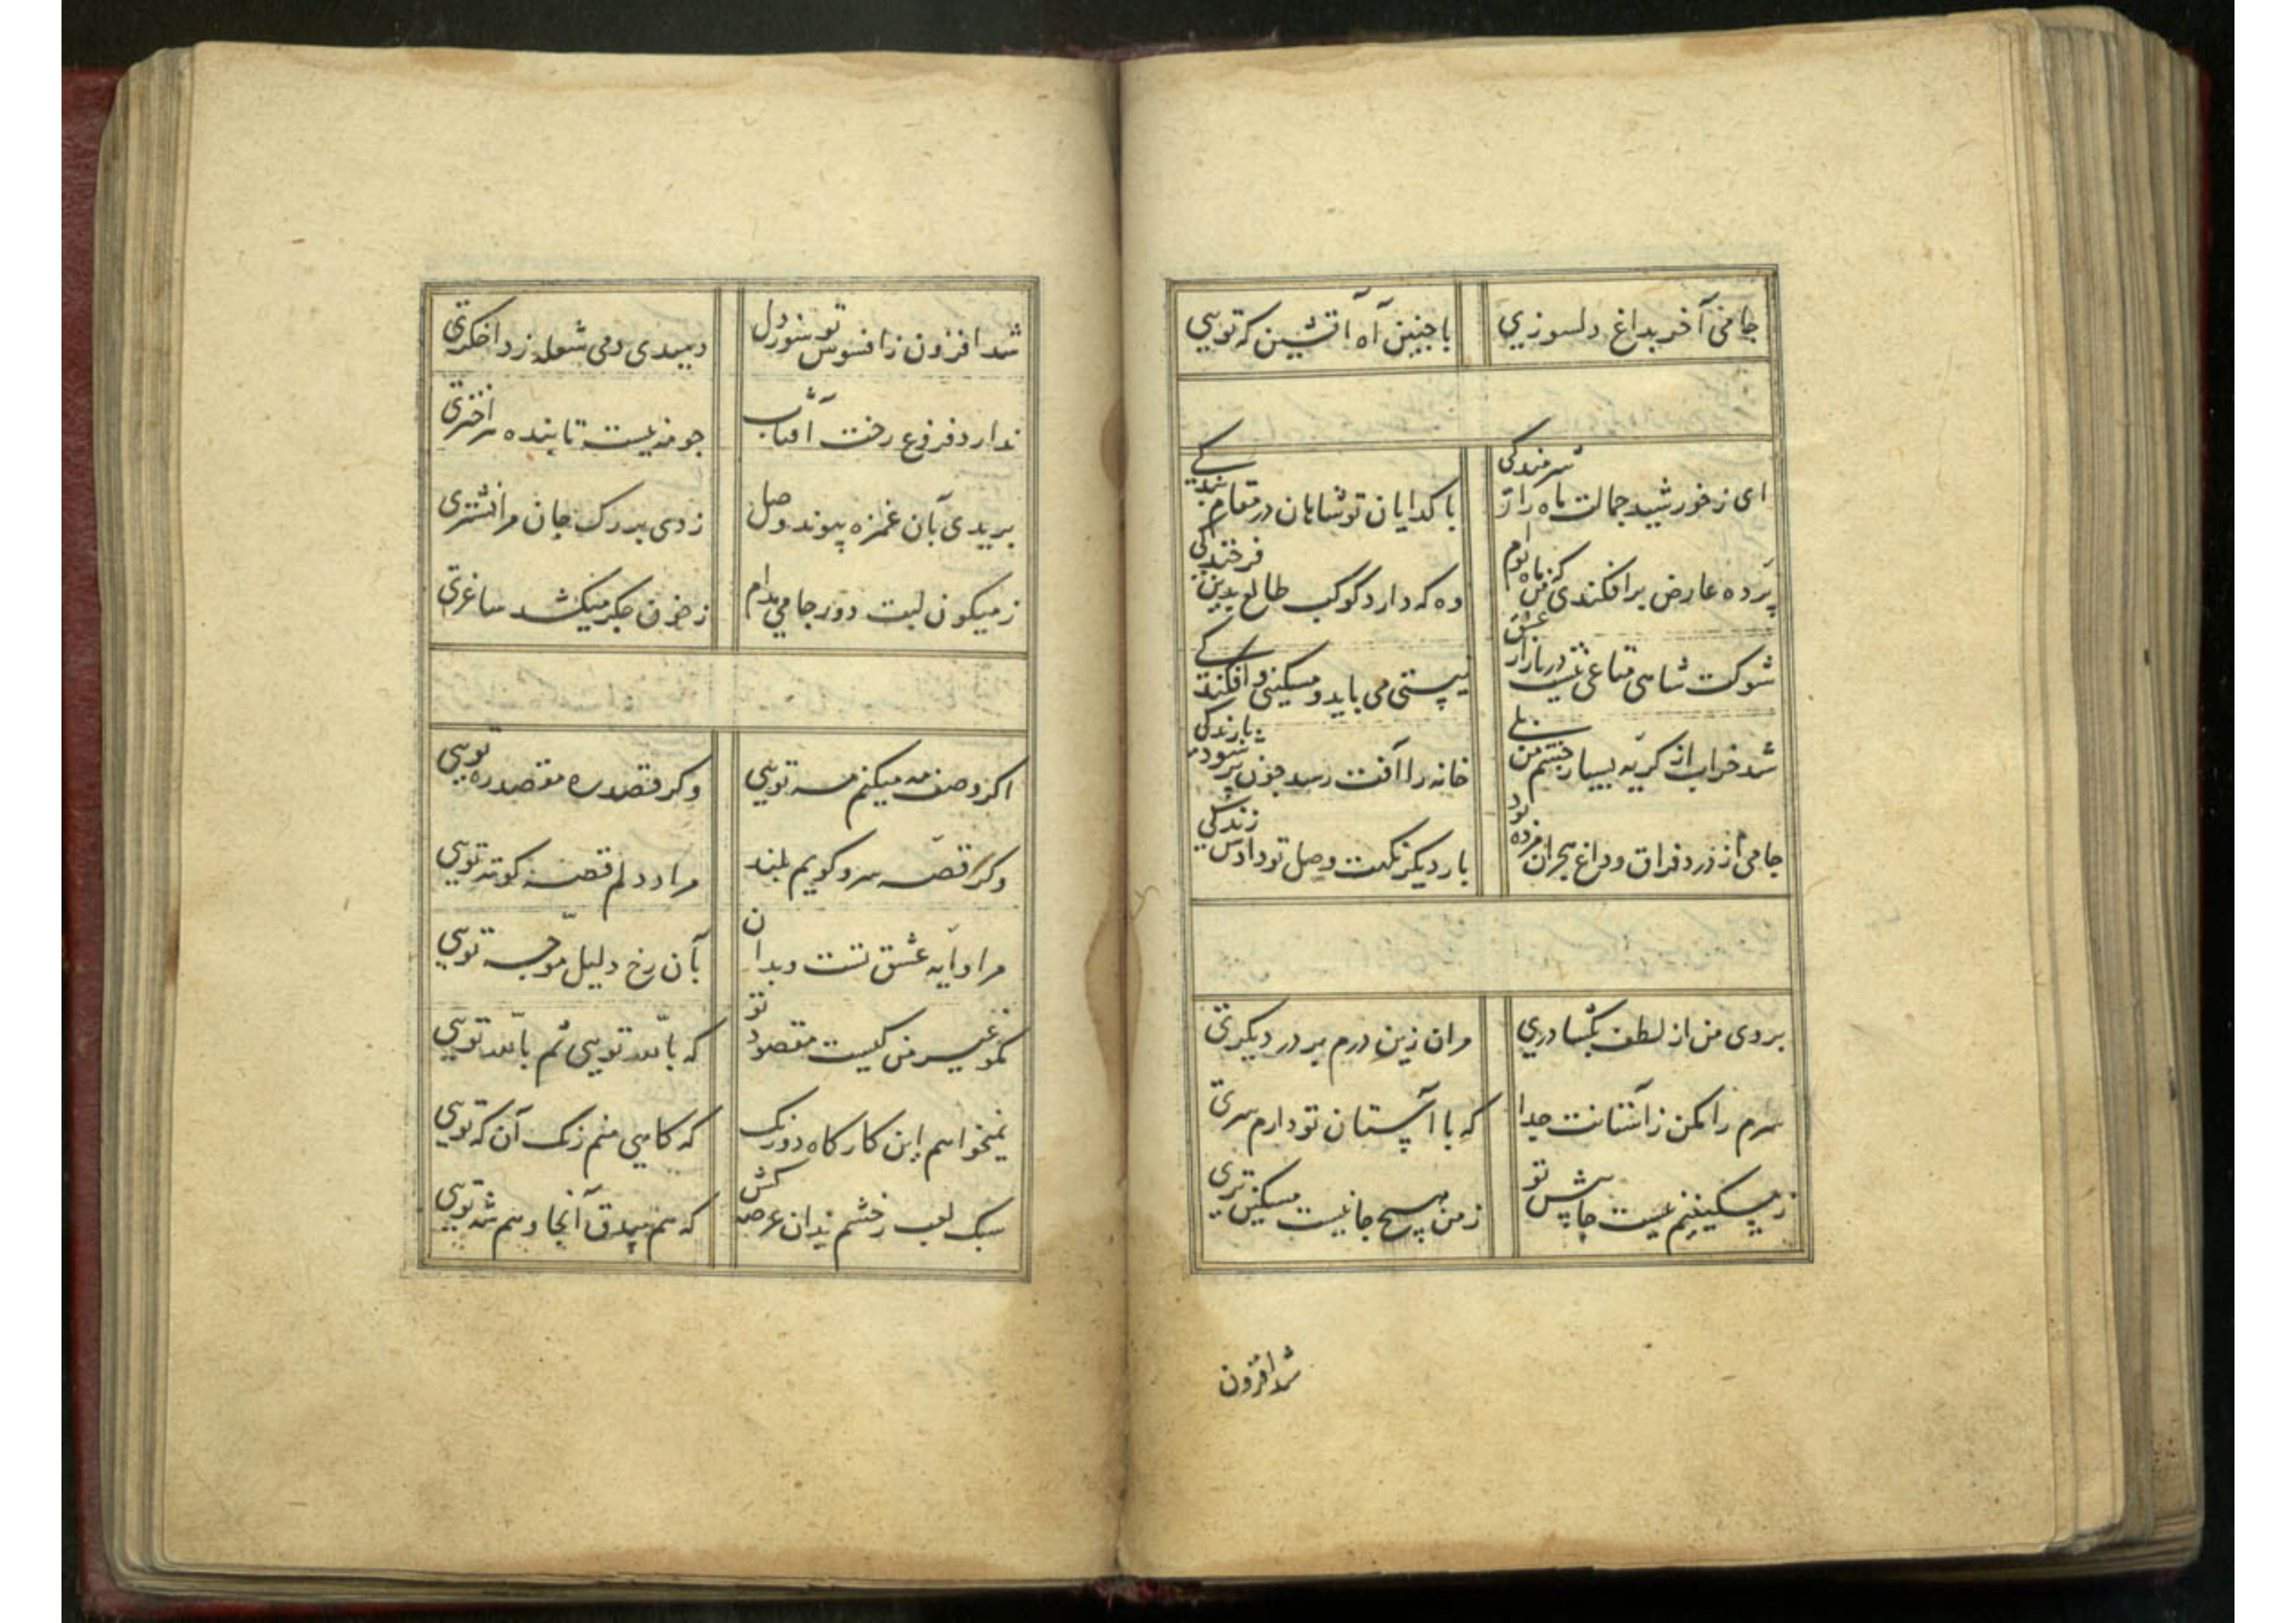 جامی آخر بداغ دلسوزی
باچنین آه آتشین که تویی
ای ز خورشید جمالت ماه را شرمندگی
با کدایان تو شاهان در مقام بندکی
پرده عارض برافکندی که من ماه توام
وه که دارد کوکب طالع بدین فرخندکی
شوکت شاهی متاعی نیست در بازار عشق
نیستی می باید و مسکینی و افکندکی
شد خراب از کریه بسیار چشم من بلی
خانه را آفت رسد چون پر شود بارندکی
جامی از درد فراق و داغ هجران مرده بود
بار دیکر نکهت وصل تو دادش زندکی
بروی من از لطف بکشا دری
مران زین درم بر در دیکری
سرم را مکن ز آستانت جدا
که با آستان تو دارم سری
ز مسکینیم نیست جا پیش تو
ز من هیچ جا نیست مسکین تری
شد افزون
شد افزون ز افسوس تو سوز دل
دمیدی دمی شعله زد اخکری
ندارد فروغ رخت آفتاب
چو مه نیست تابنده هر اختری
بریدی بآن غمزه پیوند وصل
زدی بر رک جان مرا نشتری
ز میکون لبت دور جامی مدام
ز خون جکر میکشد ساغری
اکر وصف مه میکنم مه تویی
وکر قصد ره مقصد ره تویی
وکر قصه سرو کویم بلند
مراد دلم قصه کوته تویی
مرا دایه عشق تست و بدان
بآن رخ دلیل موجه تویی
مکو غیر من کیست مقصود تو
که بالله تویی ثم بالله تویی
نمیخواهم این کارکاه دو رنک
که کاهی منم زنک آن که تویی
سبک لعب رخشم ندان عرصه کش
که هم بیدق آنجا و هم شه تویی